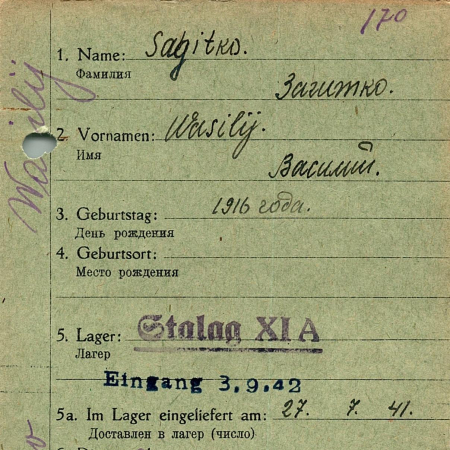 170
1. Name: Sagitko.
Фамилия
Загитко.
2. Vornamen: Wasilij.
Имя
Василий.
3. Geburtstag: 1916 года.
День рождения
4. Geburtsort:
Место рождения
5. Lager: Stalag XI A
Лагер
Eingang 3.9.42
5a. Im Lager eingeliefert am: 27. 7. 41.
Доставлен в лагер (число)
Wasilij